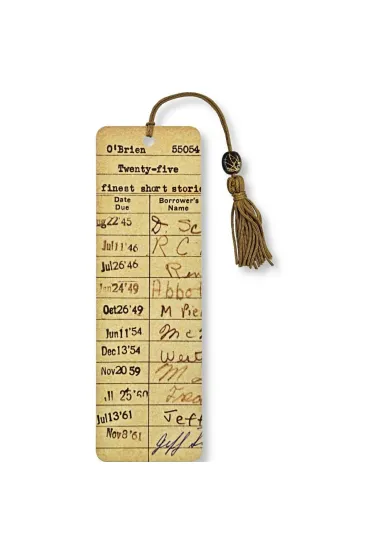 O'Brien 55054
Twenty-five
finest short storie
Date Due Borrower's Name
ug 22 '45 D. Sc
Jul 11 '46 R C
Jul 26 '46
Jan 24 '49 Abbot
Oct 26 '49 M Pie
Jun 11 '54 Mc
Dec 13 '54 West
Nov 20 59 M
Jl 25 '60
Jul 13 '61 Jeff
Nov 8 '61 Jeff